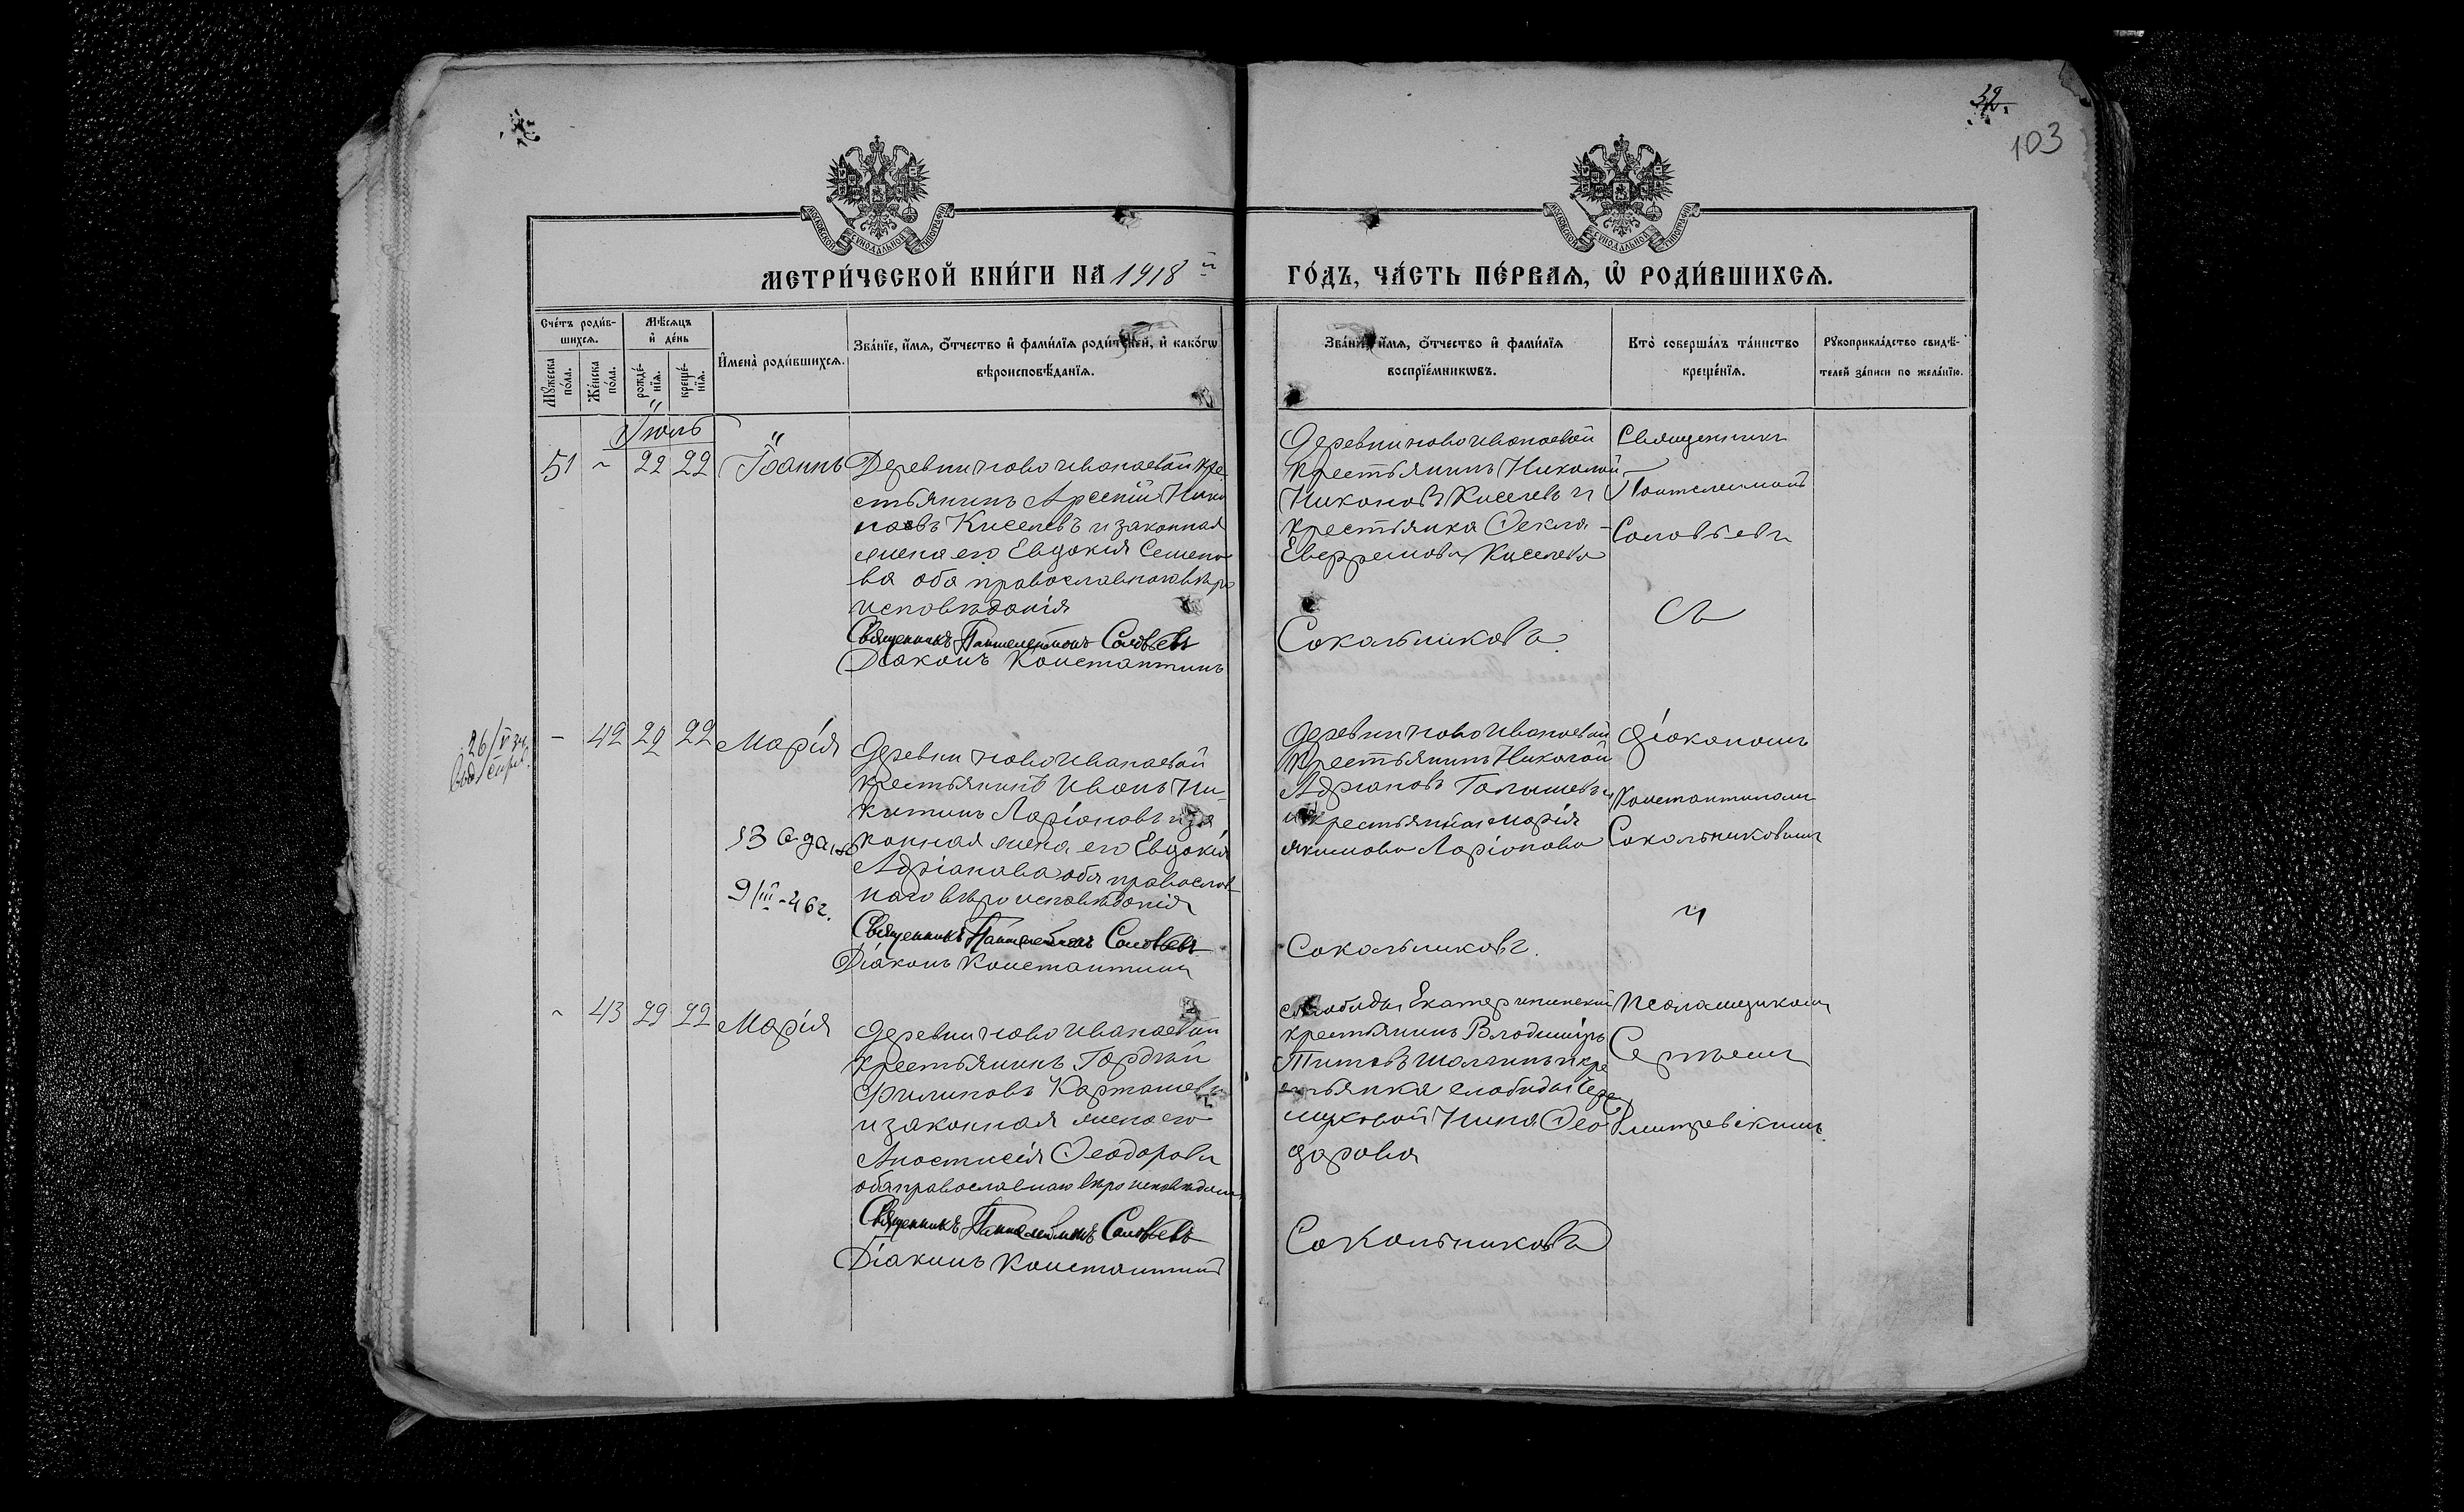 52.
103
МОСКОВСКОЙ СѴНОДАЛЬНОЙ ТИПОГРАФІИ
МОСКОВСКОЙ СѴНОДАЛЬНОЙ ТИПОГРАФІИ
МЕТРИ́ЧЕСКОЙ КНИ́ГИ НА 1918 й ГО́ДЪ, ЧА́СТЬ ПЕ́РВАѦ, Ѡ҆ РОДИ́ВШИХСѦ.
Сче́тъ роди́в-
шихсѧ.
Мꙋ́жеска по́ла.
Же́нска по́ла.
Мѣ́сѧцъ
и҆ де́нь
рожде́-нїѧ.
креще́-нїѧ.
И҆мена̀ роди́вшихсѧ.
Зва́нїе, и҆́мѧ, ѻ҆́тчество и҆ фами́лїѧ роди́телей, и҆ како́гѡ
вѣроисповѣ́данїѧ.
Зва́нїе, и҆́мѧ, ѻ҆́тчество и҆ фами́лїѧ
воспрїе́мникѡвъ.
Кто̀ соверша́лъ та́инство
креще́нїѧ.
Рꙋкоприкла́дство свидѣ́-
телей за́писи по жела́нїю.
Іюль
51 - 22 22 Іоаннъ
Деревни Ново Иванаевой кре
стьянинъ Арсений Нико
новъ Киселевъ и законная
жена его Евдокия Семено
ва оба православнаго вѣро
исповѣданія
Священникъ Пантелеимонъ Соловьевъ
Діаконъ Константинъ
Деревни Ново Иванаевой
крестьянинъ Николай
Никоновъ Киселевъ и
крестьянка Ѳекла
Евфремова Киселева
Сокольниковъ.
Священникъ
Пантелеимонъ
Соловьевъ
съ
26/
- 42 22 22 Марія
Деревни Ново Иванаевой
крестьянинъ Иванъ Ни-
китинъ Ларіоновъ и за
конная жена его Евдокія
Адріанова оба православ
наго вѣроисповѣданія
Священникъ Пантелеимонъ Соловьевъ
Діаконъ Константинъ
9/III-46г.
Деревни Ново Иванаевой
крестьянинъ Николай
Адриановъ
и крестьянка Марія
Якимова Ларіонова
Сокольниковъ.
Діакономъ
Константиномъ
Сокольниковымъ
и
- 43 22 22 Марія
Деревни Ново Иванаевой
крестьянинъ Гордѣй
Филиповъ Карташевъ
и законная жена его
Анастасія Ѳеодорова
оба православнаго вѣроисповѣдан
Священникъ Пантелеимонъ Соловьевъ
Діаконъ Константинъ
слободы Екатерининской
крестьянинъ Владиміръ
Титовъ и кре
стьянка слободы
Нина Ѳео
дорова
Сокольниковъ
Псаломщикомъ
Сергѣемъ
Дмитревскимъ.